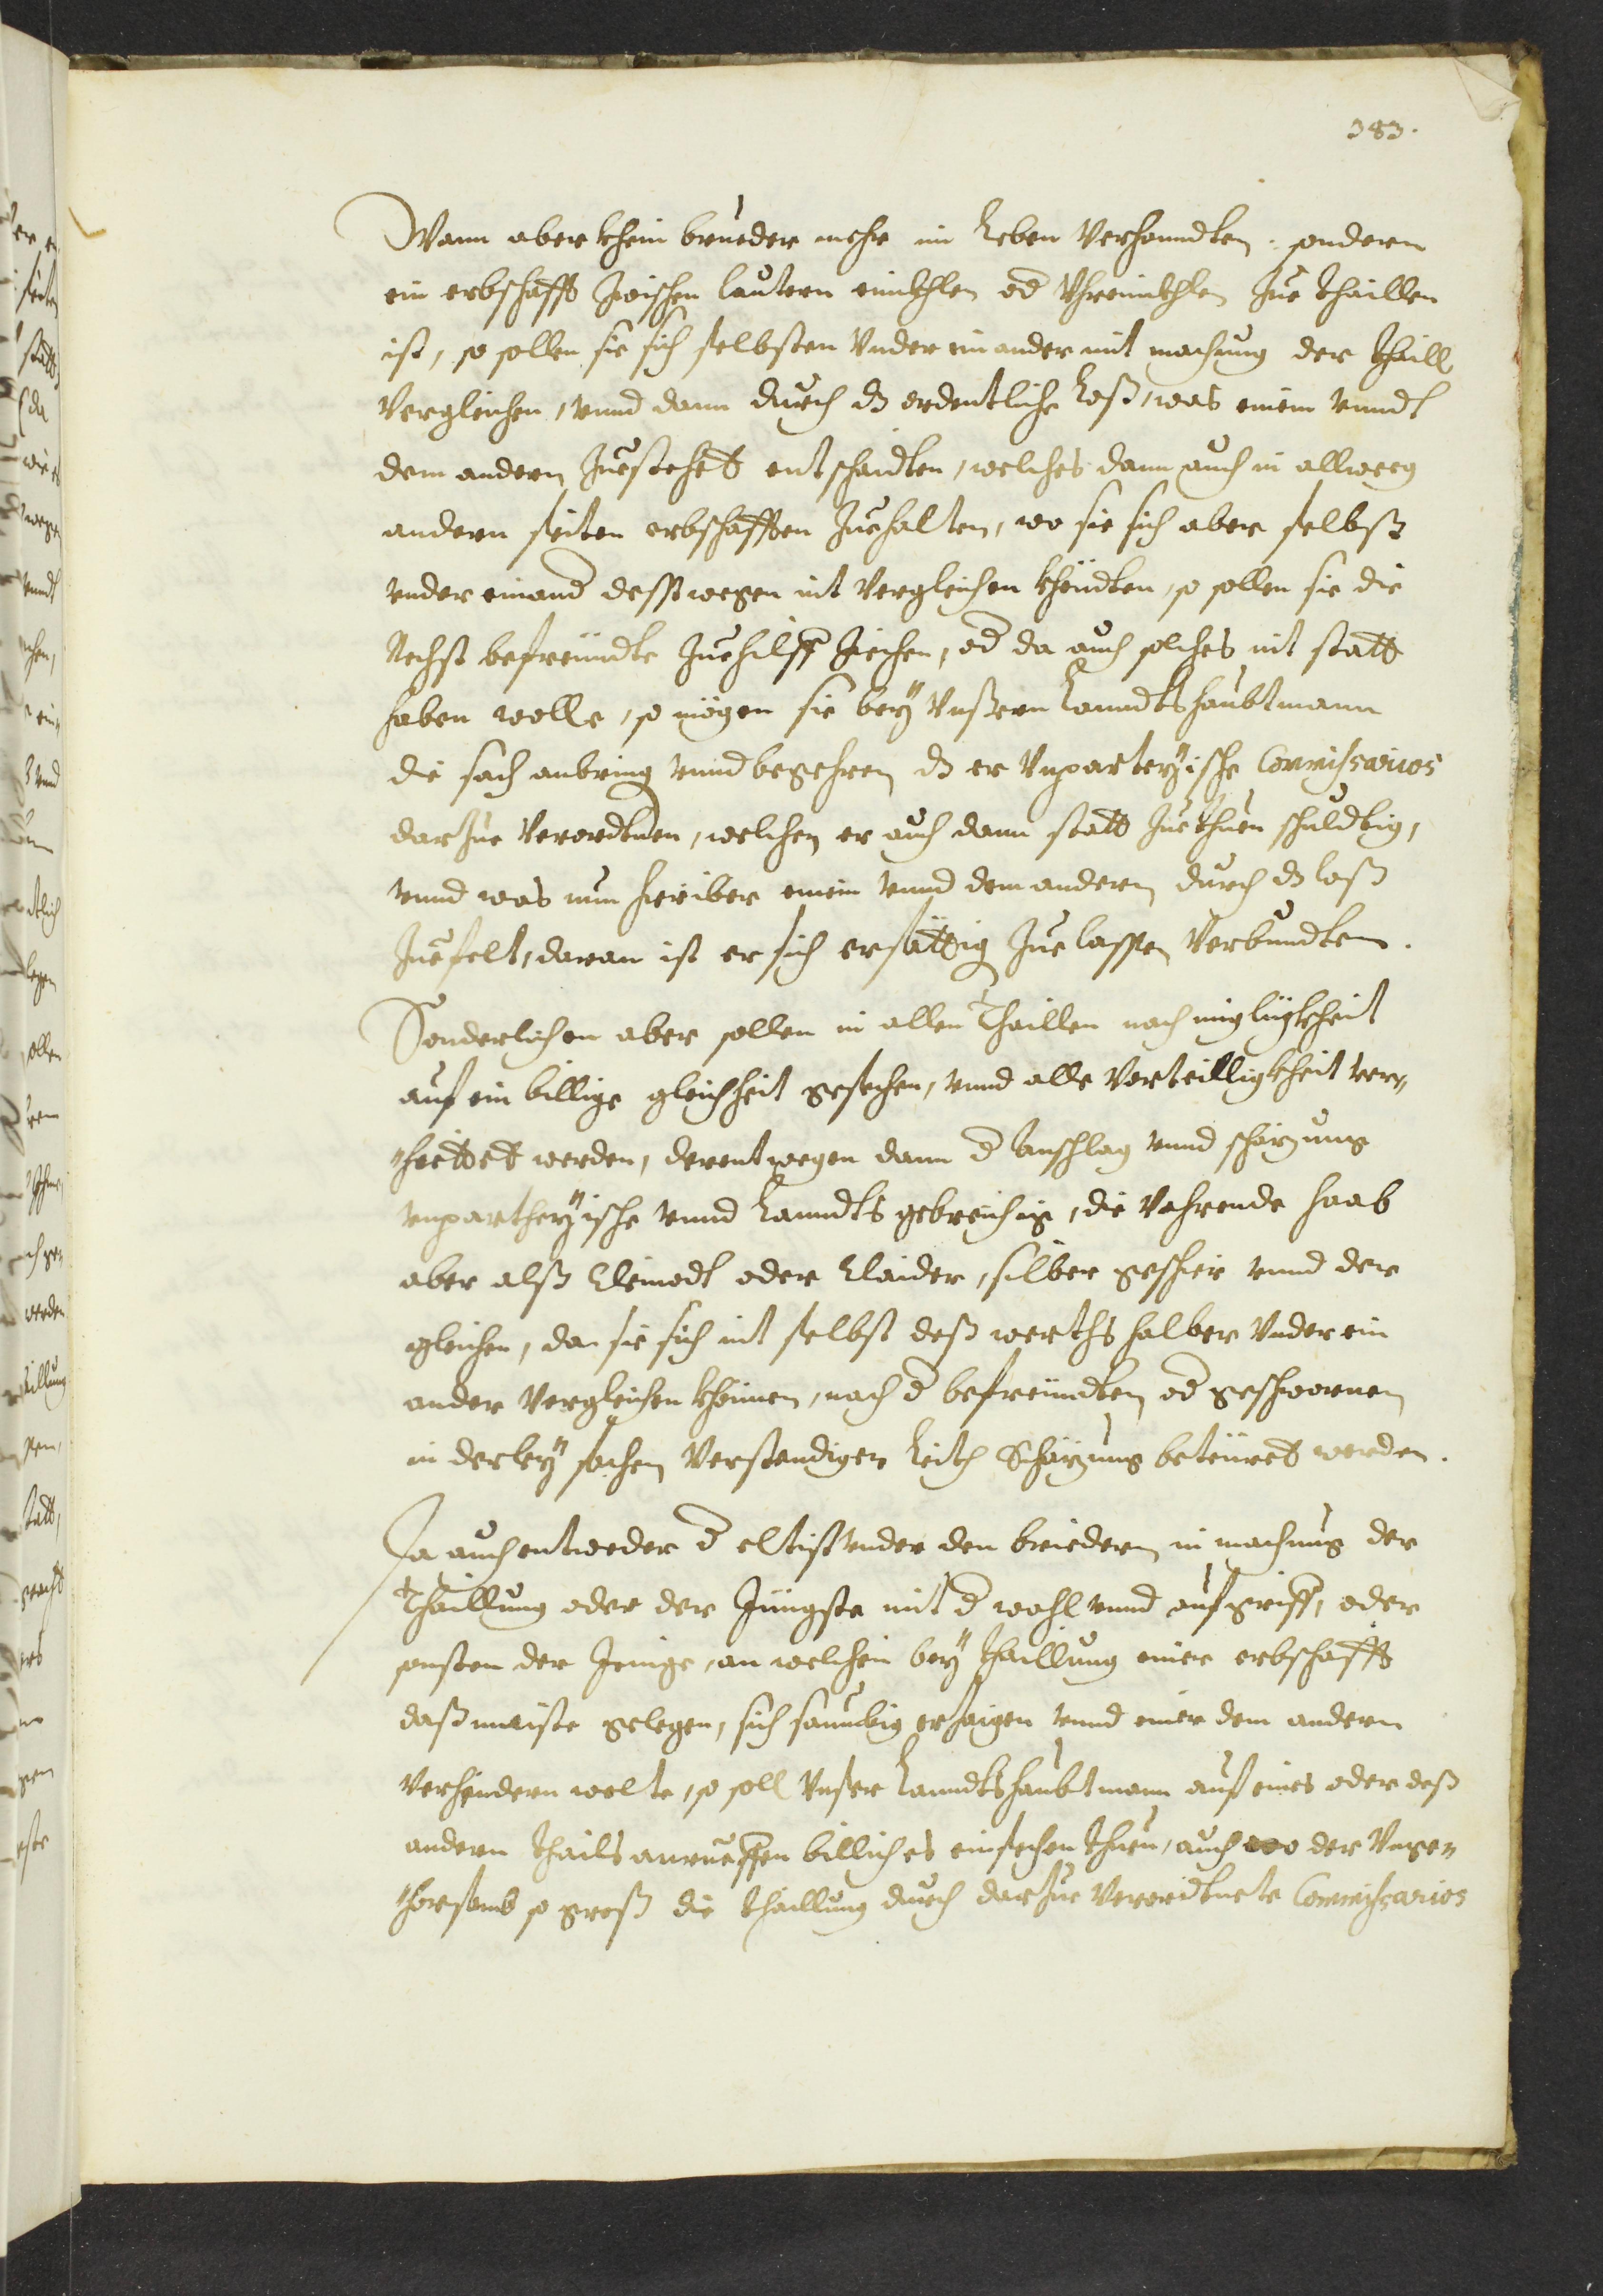 383.
Wann aber khein brueder mehr im Leben verhanndten, sondern
ein erbschafft zwischen lautern eninkhlen od Vhreninkhlen zue thaillen
ist, so sollen sie sich selbsten vnder einander mit machung der thaill
vergleichen, vnnd dann durch dz ordentliche Loß, was einem vnndt
dem andern zuestehet entschaidten, welches dann auch in allweeg
andern seiten erbschafften zuehalten, wo sie sich aber selbst
vnder einand desstwegen nit vergleichen khündten, so sollen sie die
Nechst befreündte zuehilff ziechen, od da auch solches nit statt
haben wolle, so mögen sie bey Vnßern Lanndtshaubtmann
die sach anbring vnnd begehren dz er Vnparteyische Commissarios
darzue verordtnen, welchen er auch dann statt zuethuen schuldtig,
vnnd was nun hieriber einem vnnd dem andern durch dz loß
zuefelt, daran ist er sich ersättig zuelassen verbundten.
Sonderlichen aber sollen in allen Thaillen nach migligkheit
auf ein billige gleichheit gesechen, vnnd alle Vorteilligkheit ver„
„hiettet werden, derentwegen dann d Anschlag vnnd schäzung
vnpartheyische vnnd Lanndts gebreichig, die Vahrende haab
aber alß Cleinodt oder Claider, silber geschir vnnd der
gleichen, da sie sich nit selbst deß werths halber vnder ein
ander vergleichen khönnen, nach d befreündten od geschwornen
in derley sachen verstendigen Leith Schäzung beteüret werden.
Ja auch entweder d eltist vnder den briedern in machung der
Thaillung oder der Jüngste mit d wahl vnnd aufgriff, oder
sonsten der Jenige, an welchem bey thaillung einer erbschafft
daß maiste gelegen, sich saumbig erzaigen vnnd einer dem andern
verhindern wolte, so soll Vnser Lanndtshaubtmann auf eines oder deß
andern thails anrueffen billiches einsechen thuen, auch wo der Vnge„
„horsamb so groß die thaillung durch darzue verordtnete Commissarios